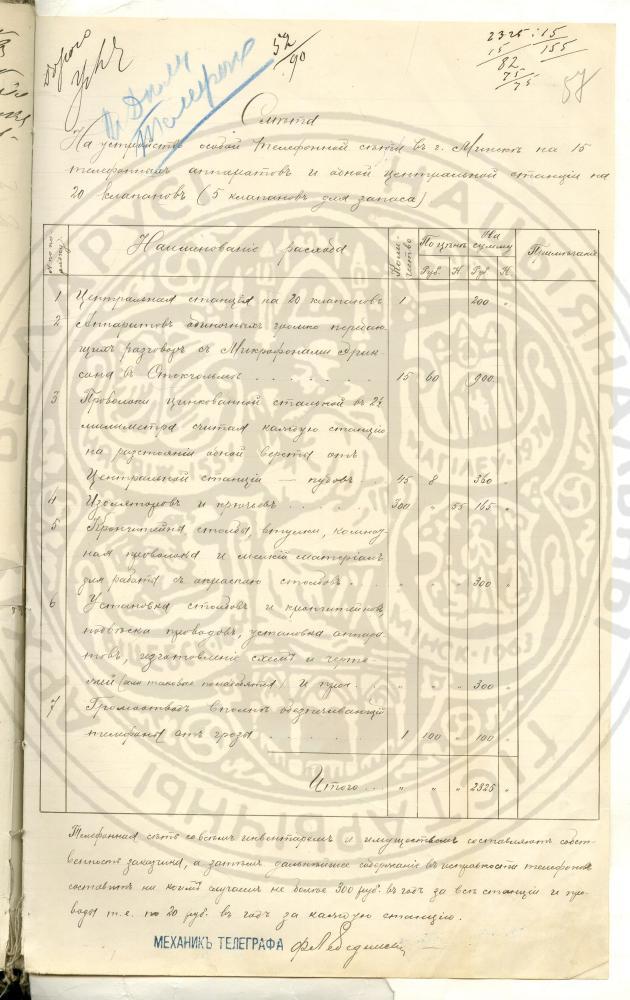 52/90
2325 : 15
15 / 155
82
75
75
57
Смѣта
На устройство особой телефонной сѣти въ г. Минскѣ на 15
телефонныхъ аппаратовъ и одной центральной станціи на
20 клапановъ (5 клапановъ для запаса)
Наименованіе расхода Коли-чество По цѣнѣ На сумму Примѣчаніе
Руб. К. Руб. К.
1 Центральная станція на 20 клапановъ 1 200 "
2 Аппаратовъ одиночныхъ громко передаю-
щихъ разговоръ съ Микрофонами Эрик-
сона въ Стокгольмѣ . . . . . . . 15 60 900 "
3 Проволоки цинкованной стальной въ 2½
милиметра считая каждую станцію
на разстояніи одной версты отъ
Центральной станціи — пудовъ . 45 8 360 "
4 Изоляторовъ и крючьевъ . . . . . 300 " 55 165 "
5 Кронштейны столбы втулки, комнат-
ная проволока и мелкій матеріалъ
для работъ съ окраскою столбовъ . . " " " 300 "
6 Установка столбовъ и кронштейновъ,
подвѣска проводовъ, установка аппара-
товъ, изготовленіе схемъ и черте-
жей (если таковые понадобятся) и проч. . " " " 300 "
7 Громоотводъ вполнѣ обезпечивающій
телефоны отъ грозы . . . . . . . 1 100 " 100 "
Итого . . " " " 2325 "
Телефонная сѣть со всѣмъ инвентаремъ и имуществомъ составляютъ собст-
венность заказчика, а затѣмъ дальнѣйшее содержаніе въ исправности телефоновъ
составитъ ни коимъ случаемъ не болѣе 300 руб. въ годъ за всѣ станціи и про-
воды т.е. по 20 руб. въ годъ за каждую станцію.
МЕХАНИКЪ ТЕЛЕГРАФА